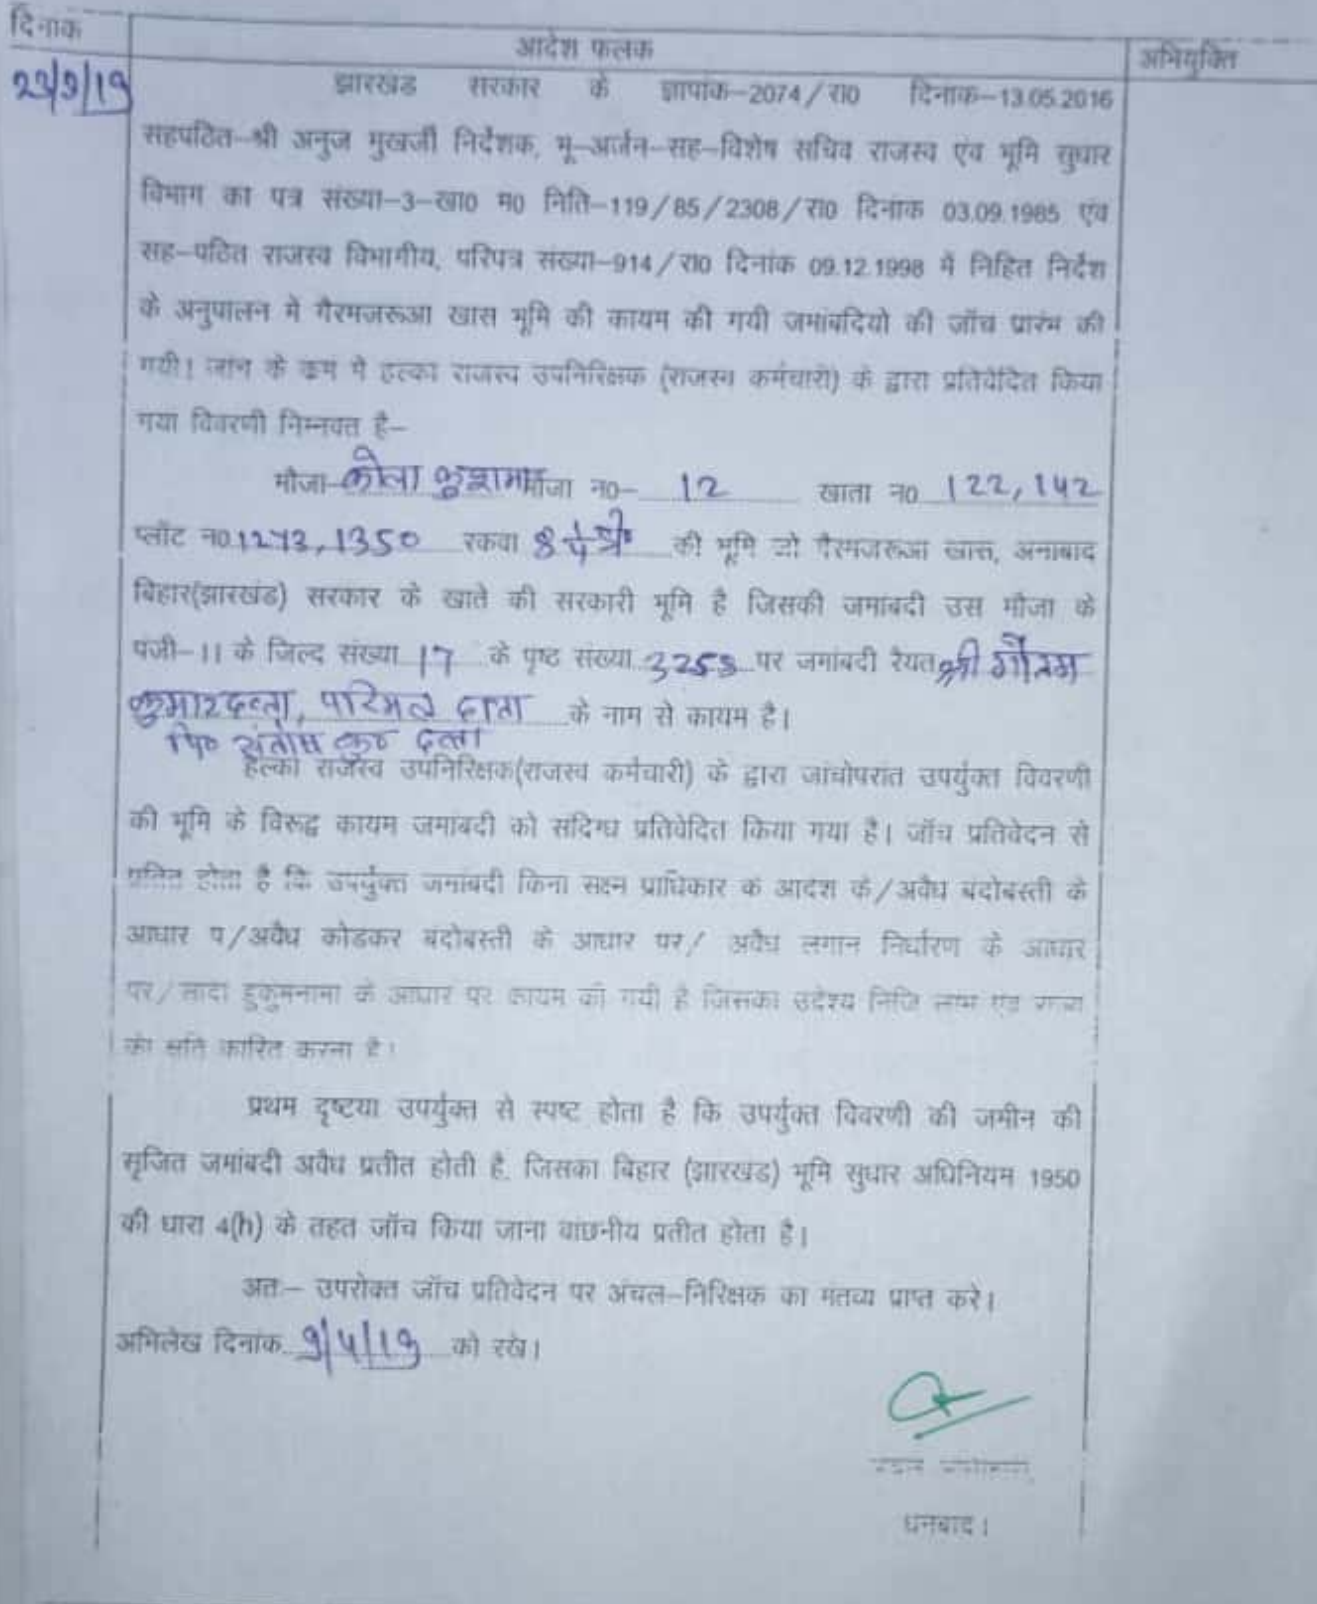 दिनांक
आदेश फलक
अभियुक्ति
23/9/19
झारखंड सरकार के ज्ञापांक-2074/रा0 दिनांक-13.05.2016
सहपठित-श्री अनुज मुखर्जी निर्देशक, भू-अर्जन-सह-विशेष सचिव राजस्व एंव भूमि सुधार
विभाग का पत्र संख्या-3-खा0 म0 निति-119/85/2308/रा0 दिनांक 03.09.1985 एंव
सह-पठित राजस्व विभागीय, परिपत्र संख्या-914/रा0 दिनांक 09.12.1998 में निहित निर्देश
के अनुपालन मे गैरमजरूआ खास भूमि की कायम की गयी जमांबदियो की जॉच प्रारंभ की
गयी। जांच के क्रम मे हल्का राजस्व उपनिरिक्षक (राजस्व कर्मचारी) के द्वारा प्रतिवेदित किया
गया विवरणी निम्नवत है-
मौजा-कोला कुशमा मौजा न0- 12 खाता न0 122, 142
प्लॉट न0 1273, 1350 रकवा की भूमि जो गैरमजरूआ खास, अनाबाद
बिहार(झारखंड) सरकार के खाते की सरकारी भूमि है जिसकी जमांबदी उस मौजा के
पंजी-11 के जिल्द संख्या 17 के पृष्ठ संख्या 3253 पर जमांबदी रैयत श्री गौतम
कुमार दत्ता, परिमल दत्ता के नाम से कायम है।
पि० संतोष कु० दत्ता
हल्का राजस्व उपनिरिक्षक(राजस्व कर्मचारी) के द्वारा जांचोपरांत उपर्युक्त विवरणी
की भूमि के विरूद्ध कायम जमांबदी को संदिग्ध प्रतिवेदित किया गया है। जॉच प्रतिवेदन से
प्रतित होता है कि उपर्युक्त जमांबदी बिना सक्षम प्राधिकार के आदेश के/अवैध बंदोबस्ती के
आधार प/अवैध कोडकर बंदोबस्ती के आधार पर/ अवैध लगान निर्धारण के आधार
पर/सादा हुकुमनामा के आधार पर कायम की गयी है जिसका उदेश्य निजि लाभ एंव राज्य
को क्षति कारित करना है।
प्रथम दृष्टया उपर्युक्त से स्पष्ट होता है कि उपर्युक्त विवरणी की जमीन की
सृजित जमांबदी अवैध प्रतीत होती है, जिसका बिहार (झारखंड) भूमि सुधार अधिनियम 1950
की धारा 4(h) के तहत जॉच किया जाना वांछनीय प्रतीत होता है।
अतः- उपरोक्त जॉच प्रतिवेदन पर अंचल-निरिक्षक का मंतव्य प्राप्त करे।
अभिलेख दिनांक 9/4/19 को रखे।
धनबाद।